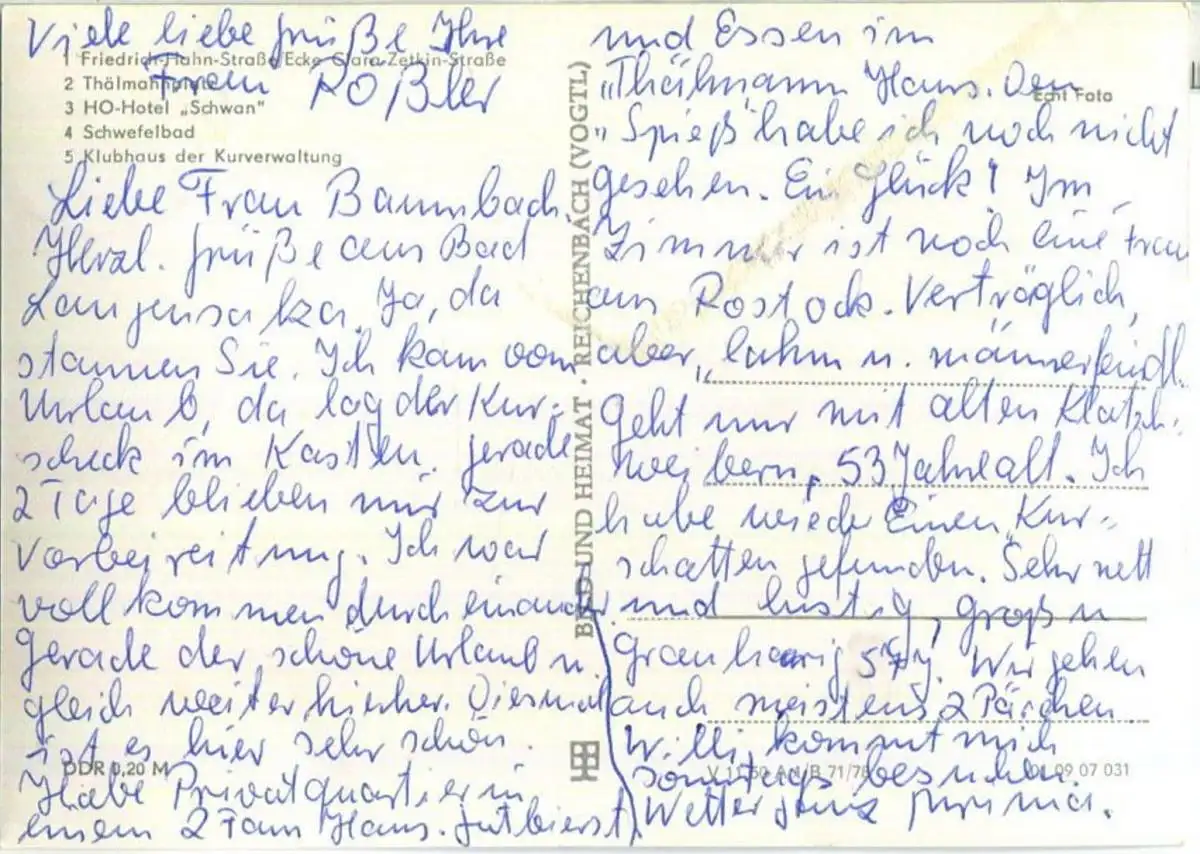 Viele liebe Grüße Ihre
Frau Rößler
1 Friedrich-Hahn-Straße/Ecke Clara-Zetkin-Straße
2 Thälmannplatz
3 HO-Hotel „Schwan"
4 Schwefelbad
5 Klubhaus der Kurverwaltung
Liebe Frau Baumbach,
Herzl. Grüße aus Bad
Langensalza. Ja, da
staunen Sie. Ich kam vom
Urlaub, da lag der Kur-
scheck im Kasten. Gerade
2 Tage blieben mir zur
Vorbereitung. Ich war
vollkommen durcheinander.
Gerade der schöne Urlaub u.
gleich weiter hierher. Diesmal
ist es hier sehr schön.
Habe Privatquartier in
einem 2 Fam Haus.
DDR 0,20 M
BILD UND HEIMAT · REICHENBACH (VOGTL)
und Essen im
„Thälmann Haus. Den
Echt Foto
„Spieß" habe ich noch nicht
gesehen. Ein Glück! Im
Zimmer ist noch eine Frau
aus Rostock. Verträglich,
aber „lahm u. männerfeindl.
Geht nur mit alten Klatsch-
weibern, 53 Jahre alt. Ich
habe wieder Einen Kur-
schatten gefunden. Sehr nett
und lustig, groß u
Grauhaarig 57 J. Wir gehen
auch meistens 2 Pärchen.
Willi kommt mich
sonntags besuchen.
Wetter ganz prima.
V 11 50 A 1/B 71/76
01 09 07 031